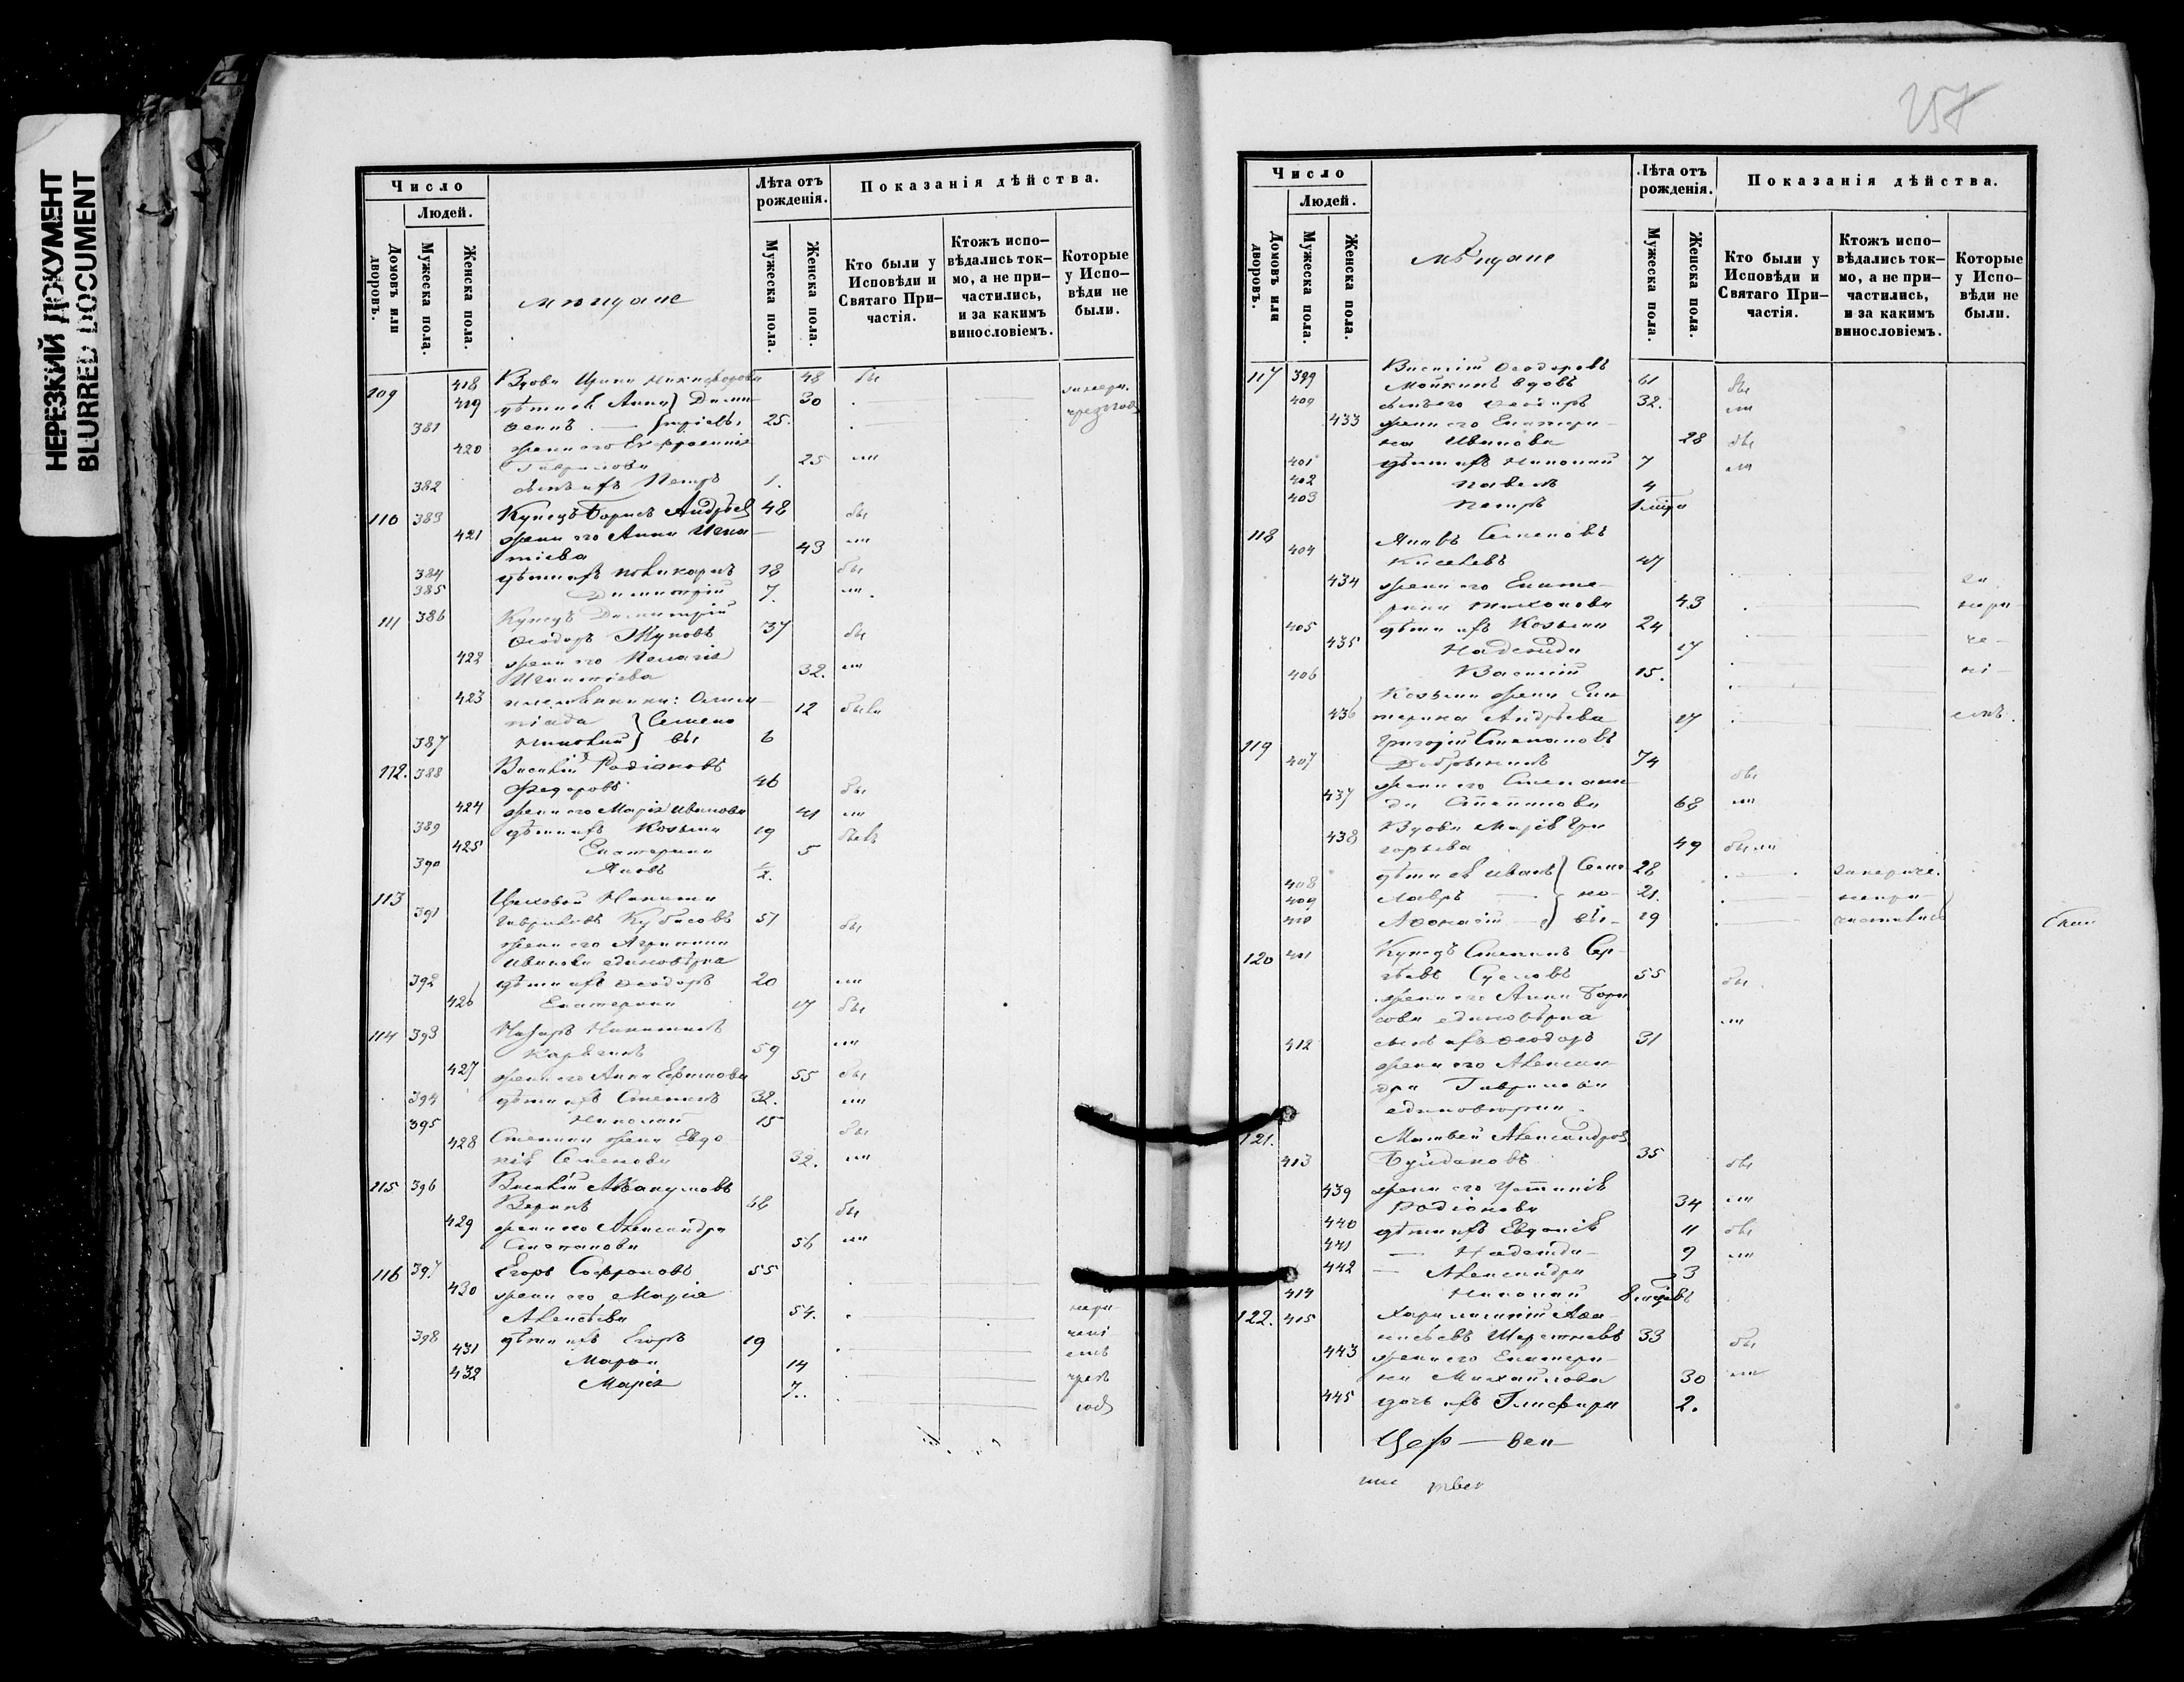 НЕРЕЗКИЙ ДОКУМЕНТ
BLURRED DOCUMENT
Число
Людей.
Домовъ или дворовъ.
Мужеска пола.
Женска пола.
мѣщане
Лѣта отъ рожденія.
Мужеска пола.
Женска пола.
Показанія дѣйства.
Кто были у Исповѣди и Святаго Причастія.
Ктожъ исповѣдались токмо, а не причастились, и за какимъ винословіемъ.
Которые у Исповѣди не были.
109 418 Вдова Ирина Никифорова 48 бы
419 дѣти ея Анна 30
381 25.
420 жена его Евфросинія
Гаврилова 25 ли
382 сынъ ихъ Петръ 1.
110 383 Купецъ Борисъ Андрѣев 48 бы
421 жена его Анна Игна—
тіева 43 ли
384 дѣти ихъ Поликарпъ 18 бы
385 Димитрій 7. ли.
111 386 Купецъ Димитрій
Ѳеодоръ Жуковъ 37 бы
422 жена его Пелагія
Игнатіева 32. ли
423 племянники: Олим—
піада } Семено 12 были
387 Николай } вы 6
112. 388 Василій Родіоновъ
Федоровъ 46 бы
424 жена его Марія Иванова 41 ли
389 дѣти ихъ Козьма 19 былъ
425 Екатерина 5
390 Яковъ ½.
113 Цеховой Никита
391 Гавриловъ 51 бы
жена его Агрипина
Иванова единовѣрка
392 дѣти ихъ Ѳеодоръ 20 ли
426 Екатерина 17 бы
114 393 Назаръ Никитинъ ли
Карягинъ 59
427 жена его Анна Ефимова 55 бы
394 дѣти ихъ Степанъ 32. ли
395 Николай 15 бы
428 Степана жена Евдо
кія Семенова 32. ли
115 396 Василій Аввакумовъ
48 бы
429 жена его Александра
Степанова 56 ли
116 397 Егоръ Софроновъ 55
430 жена его Марія
Алексѣева 54.
398 дѣти ихъ Егоръ 19
431 Марѳа 14
432 Марія 7.
257
Число
Людей.
Домовъ или дворовъ.
Мужеска пола.
Женска пола.
мѣщане
Лѣта отъ рожденія.
Мужеска пола.
Женска пола.
Показанія дѣйства.
Кто были у Исповѣди и Святаго Причастія.
Ктожъ исповѣдались токмо, а не причастились, и за какимъ винословіемъ.
Которые у Исповѣди не были.
117 399 Василій Ѳеодоровъ
Мойкинъ вдовъ 61 бы
400 сынъ его Ѳеодоръ 32. ли
433 жена его Екатери—
на Иванова 28 бы
401 дѣти ихъ Николай 7 ли
402 Павелъ 4
403 Петръ
118 404 Яковъ Семеновъ
Киселевъ 47
434 жена его Екате—
рина Тихонова 43
405 дѣти ихъ Козьма 24
435 Надежда 17
406 Василій 15.
Козьмы жена Ека
436 терина Андрѣева 17
119 Григорій Степановъ
407 Добрынинъ 74 бы
437 жена его Степани
да Степанова 68 ли
438 Вдова Марія Гри
горьева 49 были
408 дѣти ея Иванъ } Семе 28
409 Лавръ — но— 21.
410 Аѳонасій — вы— 19
120 411 Купецъ Степанъ Сер—
гѣевъ Сусловъ 55 бы
жена его Анна Бори
сова единовѣрка ли
412 сынъ ихъ Ѳеодоръ 31
жена его Алексан—
дра Гаврилова
единовѣрка.
121. Матвей Александров
413 Буйдаковъ 35 бы
439 жена его Устинія
Родіонова 34 ли
440 дѣти ихъ Евдокія 11 бы
441 — Надежда— 9 ли
442 — Александра 3
414 Николай
122. 415 Харлампій Аѳа
насьевъ 33 бы
443 жена его Екатери—
на Михайлова 30 ли
445 дочь ихъ Глафира 2.